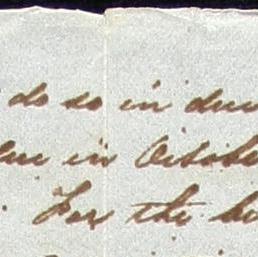 do so in due
in October
For the